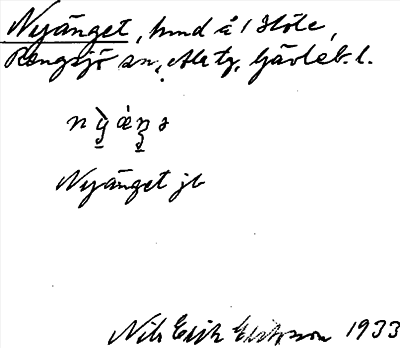 Nyänget, hmd å 1 Höle,
Rengsjö sn, Alir tg, Gävleb. l.
Nyänget jb
Nils Erik Eriksson 1933